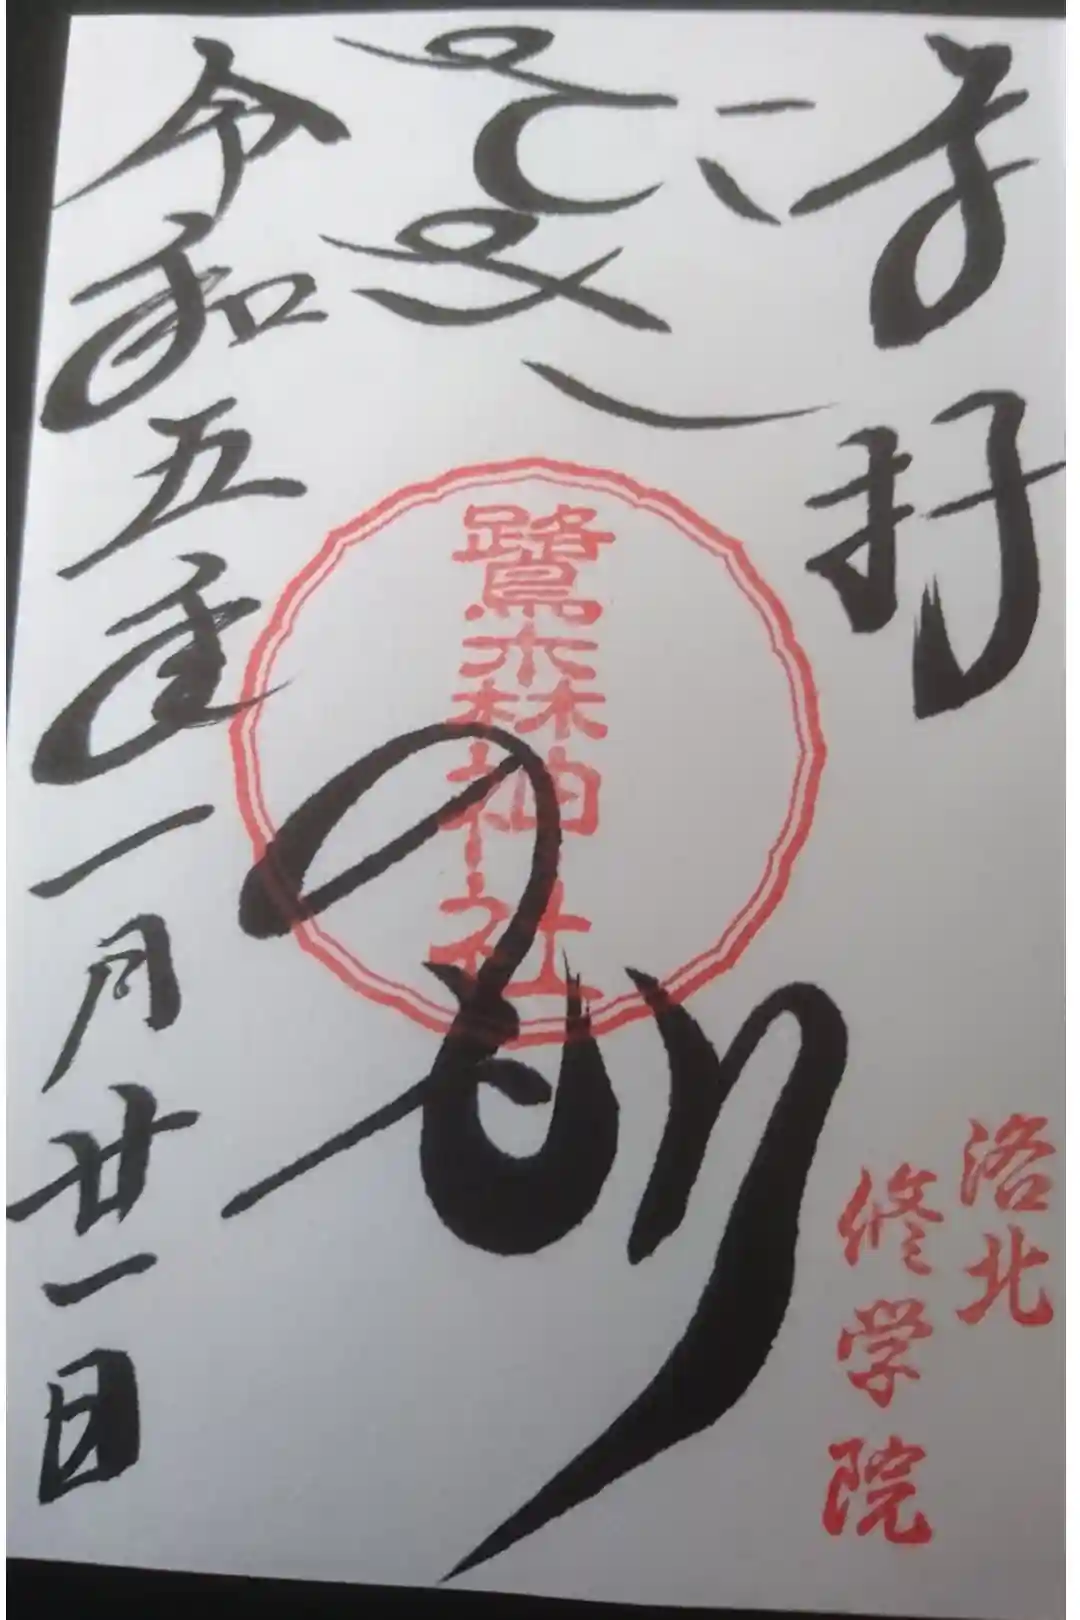 奉拝
さぎのもり
鷺森神社
洛北
修学院
令和五年一月廿一日